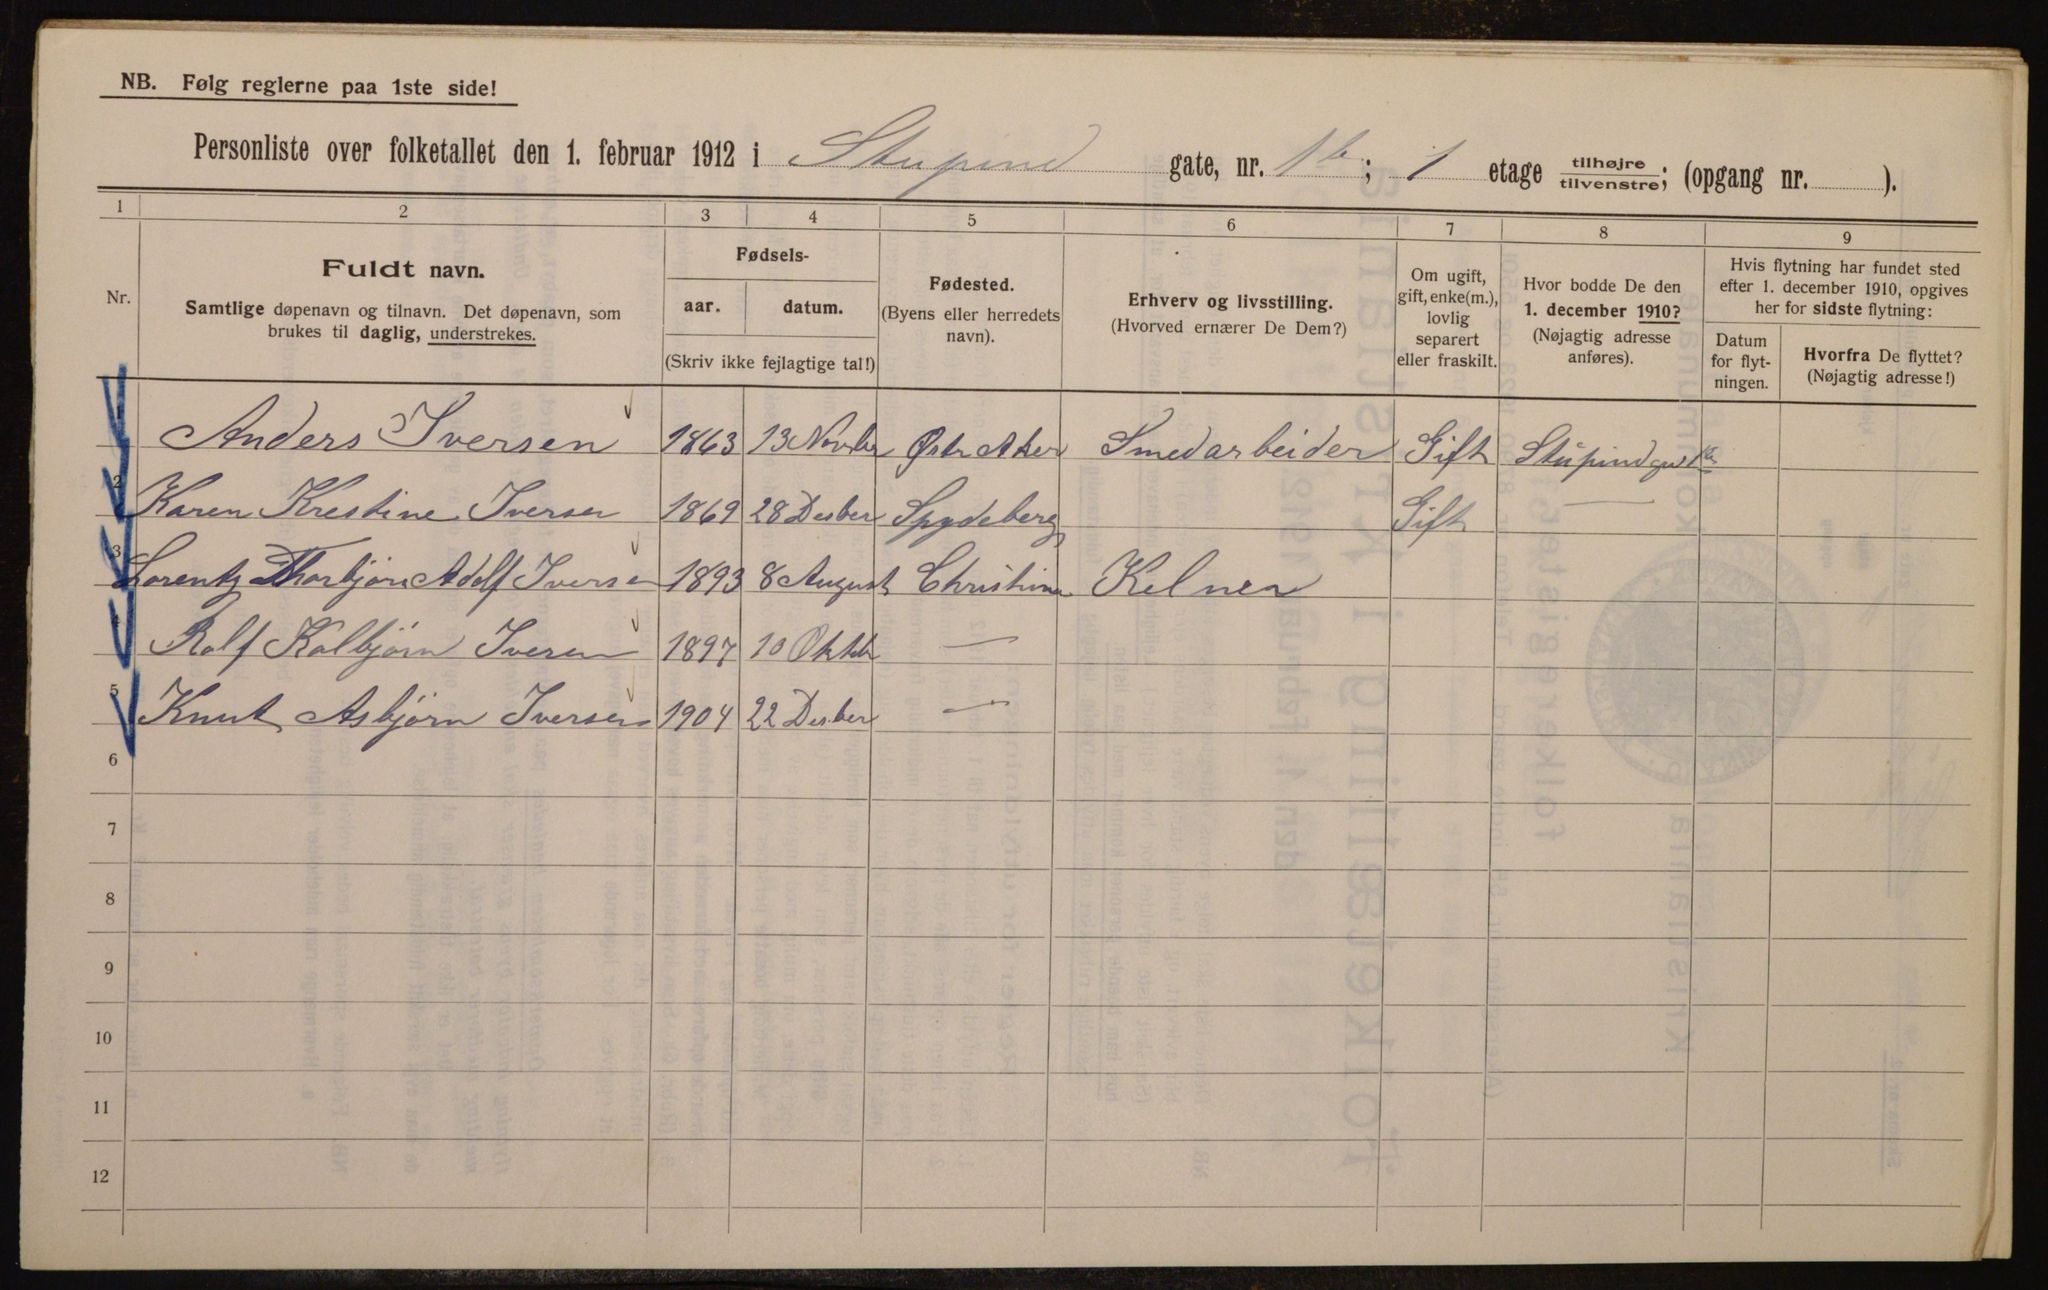 NB. Følg reglerne paa 1ste side!
Personliste over folketallet den 1. februar 1912 i Stupind gate, nr. 1b; 1 etage tilhøjre/tilvenstre; (opgang nr. ).
1 2 3 4 5 6 7 8 9
Nr.
Fuldt navn.
Samtlige døpenavn og tilnavn. Det døpenavn, som
brukes til daglig, understrekes.
Fødsels-
aar. datum.
(Skriv ikke fejlagtige tal!)
Fødested.
(Byens eller herredets
navn).
Erhverv og livsstilling.
(Hvorved ernærer De Dem?)
Om ugift,
gift, enke(m.),
lovlig
separert
eller fraskilt.
Hvor bodde De den
1. december 1910?
(Nøjagtig adresse
anføres).
Hvis flytning har fundet sted
efter 1. december 1910, opgives
her for sidste flytning:
Datum
for flyt-
ningen.
Hvorfra De flyttet?
(Nøjagtig adresse!)
1 Anders Iversen 1863 13 Novber Østr Aker Smedarbeider Gift Stupindgt 1b
2 Karen Krestine Iversen 1869 28 Desber Spydeberg Gift —
3 Lorentz Thorbjørn Adolf Iversen 1893 8 August Christiania Kelner
4 Rolf Kolbjørn Iversen 1897 10 Oktbr —
5 Knut Asbjørn Iversen 1904 22 Desber —
6
7
8
9
10
11
12